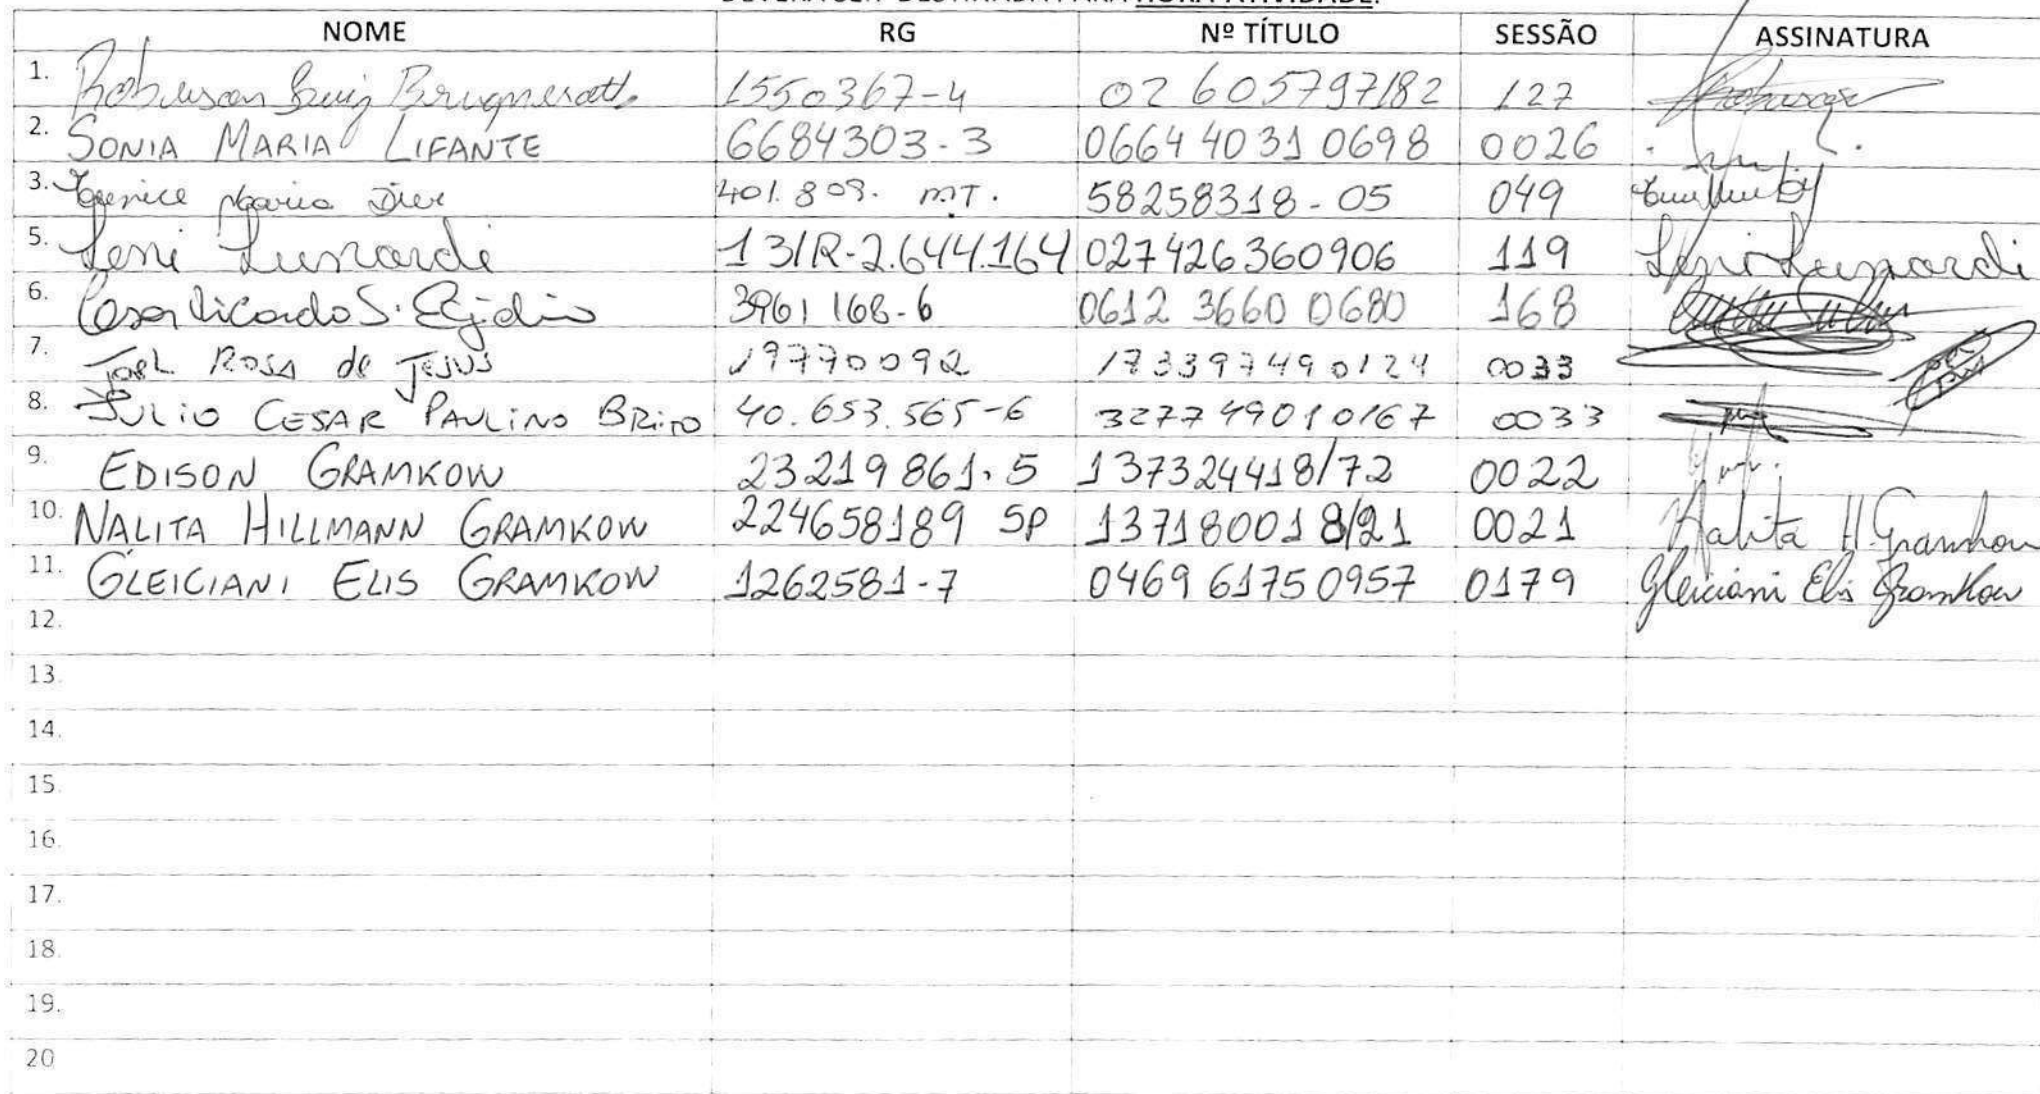 HORA ATIVIDADE.
NOME RG Nº TÍTULO SESSÃO ASSINATURA
1. Robinson Luiz 1550367-4 02605797182 127
2. SONIA MARIA LIFANTE 6684303-3 0664 4031 0698 0026
3. Maria 401.809. MT. 58258318-05 049
5. Leni Lunardi 13/R-2.644.164 027426360906 119 Leni Lunardi
6. Cesar Ricardo S. Egidio 3961168-6 0612 3660 0680 168
7. Joel Rosa de Jesus 19770092 173397490124 0033
8. JULIO CESAR PAULINO BRITO 40.653.565-6 327749010167 0033
9. EDISON GRAMKOW 23219861.5 137324418/72 0022
10. NALITA HILLMANN GRAMKOW 224658189 SP 137180018/21 0021 Nalita H. Gramkow
11. GLEICIANI ELIS GRAMKOW 1262581-7 0469 6175 0957 0179 Gleiciani Elis Gramkow
12.
13.
14.
15.
16.
17.
18.
19.
20